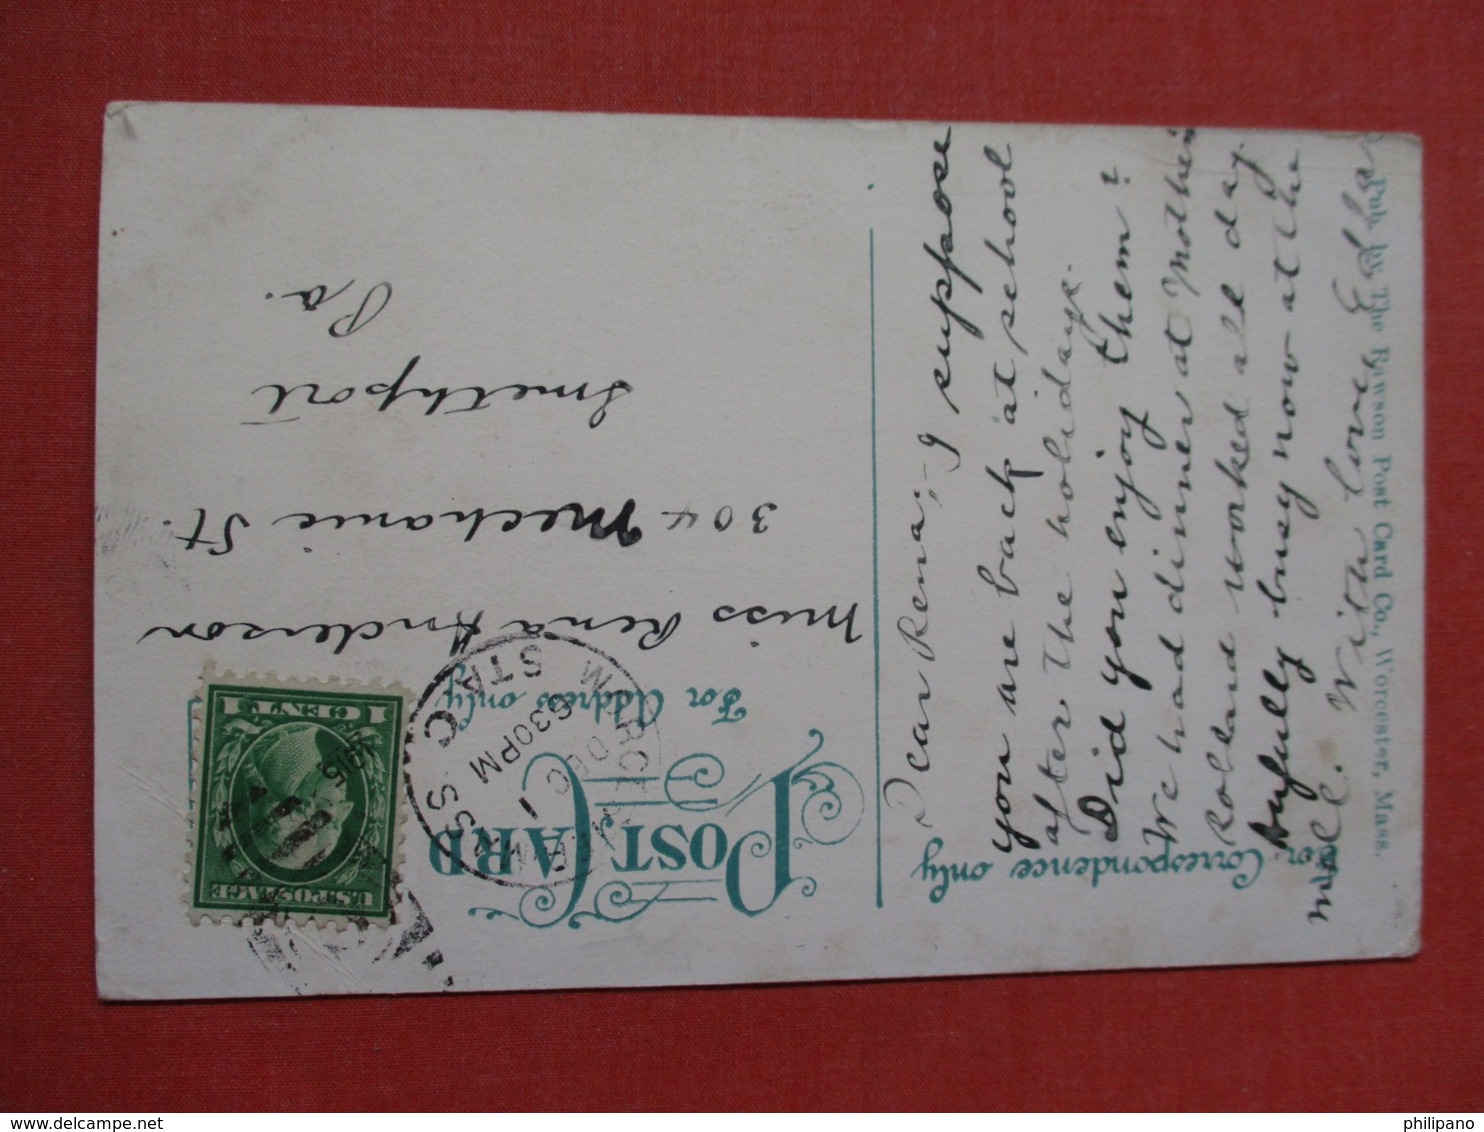 POST CARD
For Correspondence only
For Address only
Dear Rena;- I suppose
you are back at school
after the holidays.
Did you enjoy them?
We had dinner at Mother
Rolland worked all day.
Awfully busy now at the
mill. With love,
Pub. by The Rawson Post Card Co., Worcester, Mass.
Miss Rena Anderson
304 Mechanic St.
Smethport
Pa.
WORCESTER
DEC 1
630PM
1915
MASS
STA C
U.S. POSTAGE
1 CENT 1
philipano